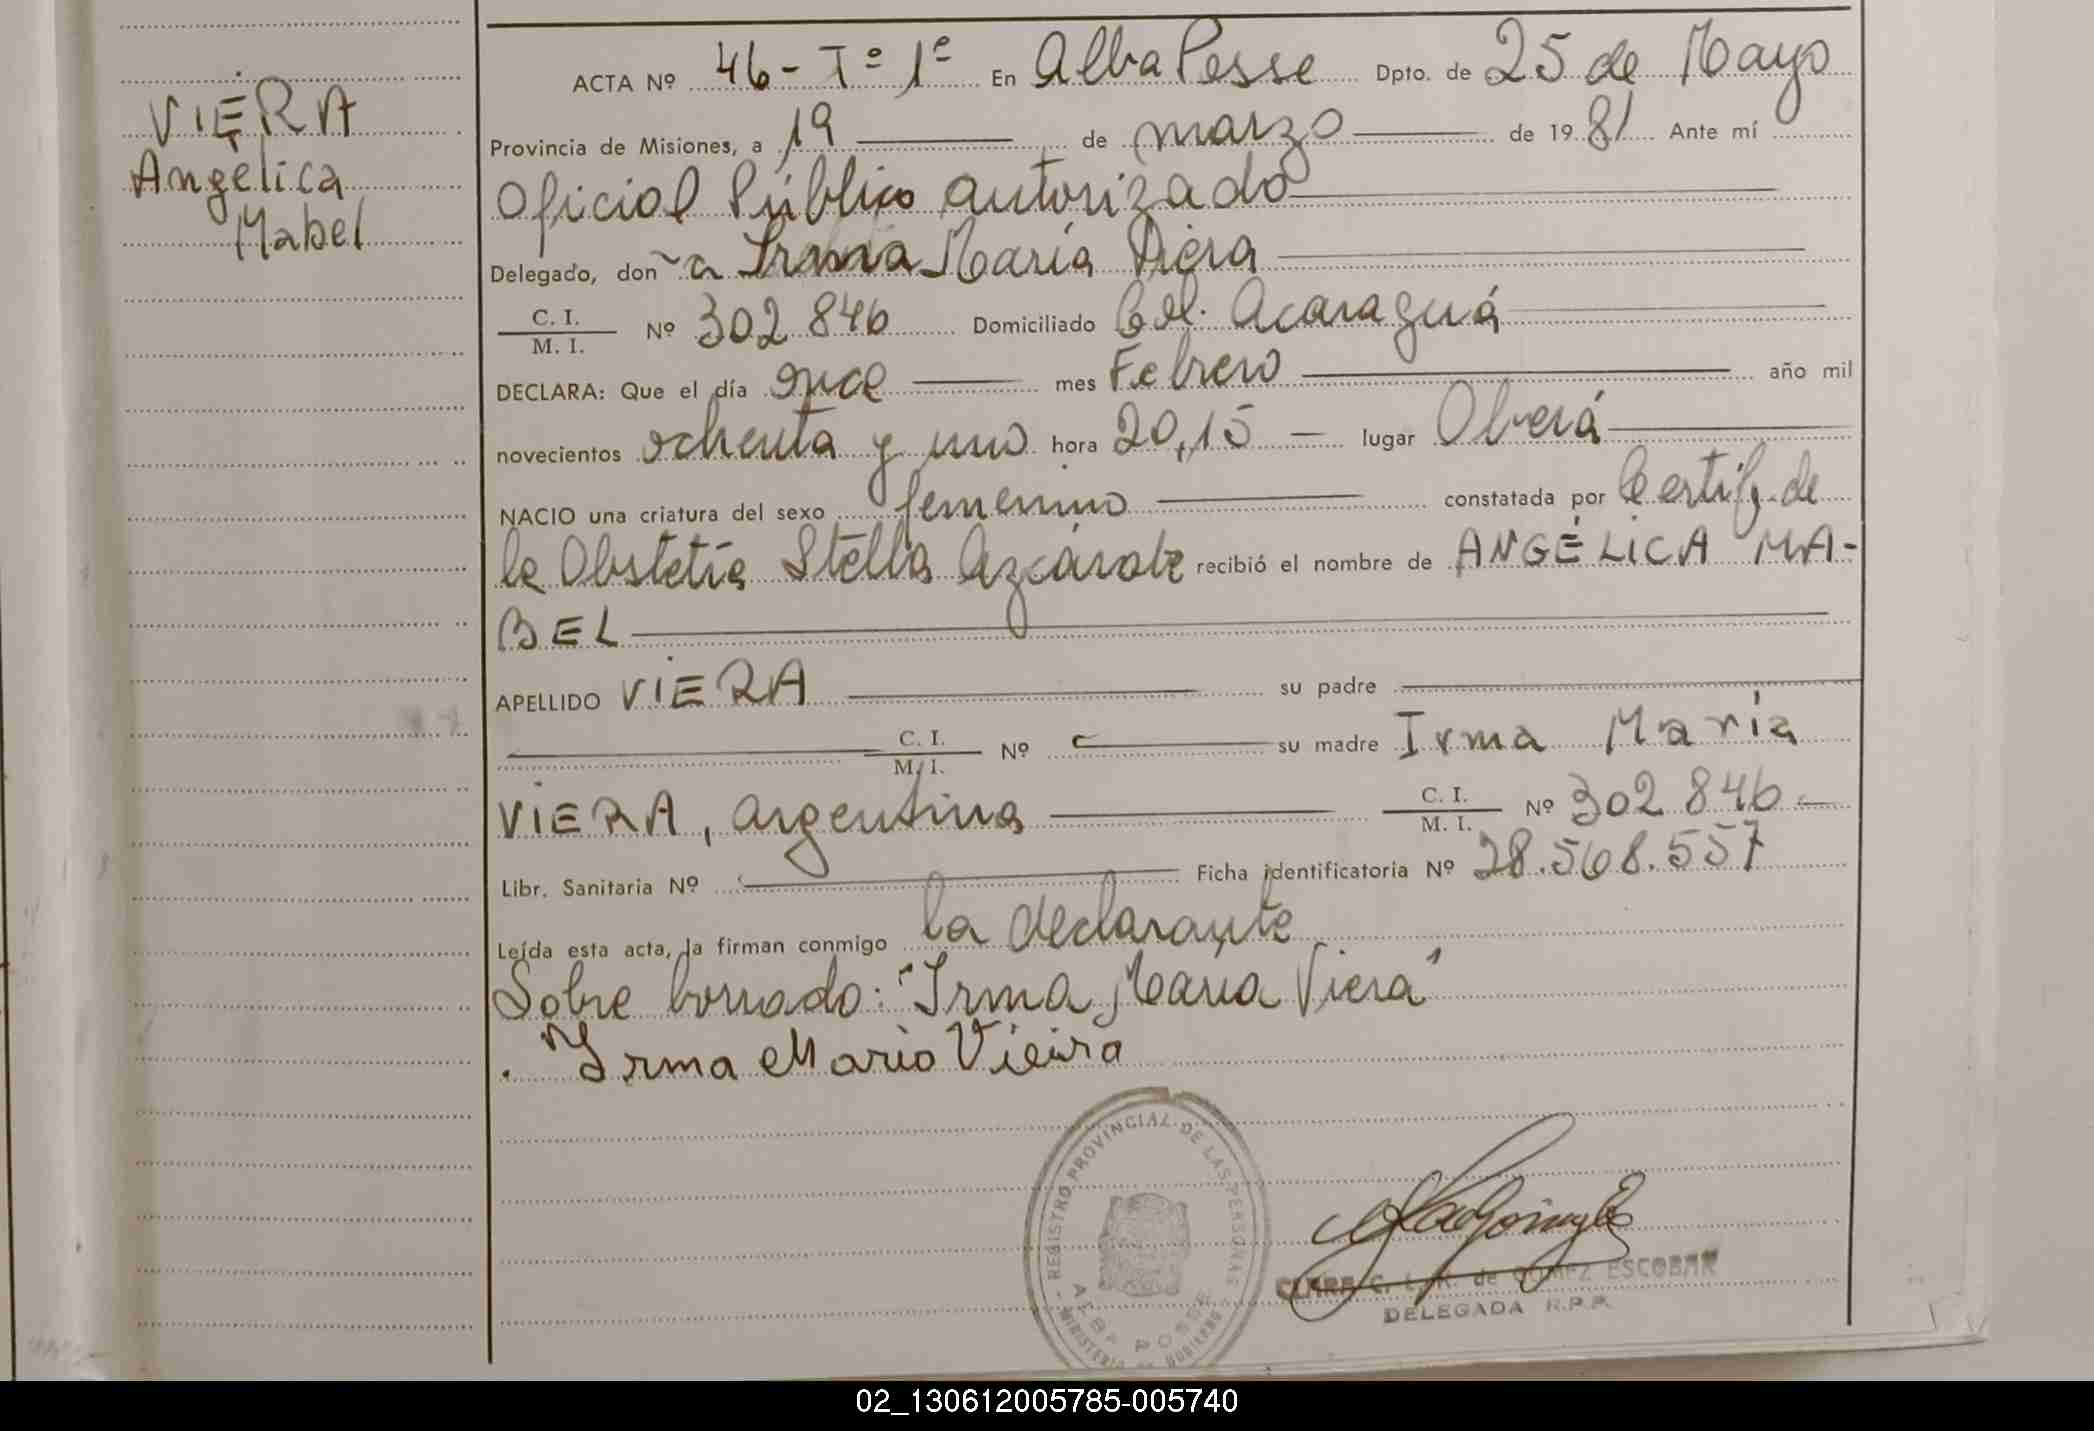 VIERA
Angélica
Mabel
ACTA Nº 46 - Tº 1º En Alba Posse Dpto. de 25 de Mayo
Provincia de Misiones, a 19 de marzo de 1981 Ante mí
Oficial Público autorizado
Delegado, don~a Irma María Viera
C. I. / M. I. Nº 302 846 Domiciliado Col. Acaraguá
DECLARA: Que el día once mes Febrero año mil
novecientos ochenta y uno hora 20,15 — lugar Oberá
NACIO una criatura del sexo femenino constatada por Certif. de
la Obstetra Stella Azcárate recibió el nombre de ANGÉLICA MA-
BEL
APELLIDO VIERA su padre
C. I. / M. I. Nº su madre Irma María
VIERA, argentina C. I. / M. I. Nº 302 846
Libr. Sanitaria Nº Ficha identificatoria Nº 28.568.557
Leída esta acta, la firman conmigo la declarante
Sobre borrado: "Irma María Viera"
Irma Maria Vieira
REGISTRO PROVINCIAL DE LAS PERSONAS - MINISTERIO DE GOBIERNO -
ALBA POSSE
de GOMEZ ESCOBAR
DELEGADA R.P.P.
02_130612005785-005740